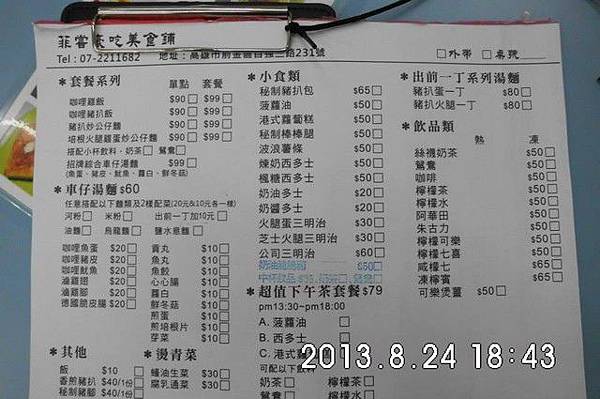 菲客豪吃美食鋪
Tel：07-2211682　地址：高雄市前金區自強三路231號
□外帶 □桌號
＊套餐系列 單點 套餐
咖哩雞飯 $90□ $99□
咖哩豬扒飯 $90□ $99□
豬扒炒公仔麵 $90□ $99□
培根火腿雞蛋炒公仔麵 $90□ $99□
搭配小杯飲料，奶茶□ 鴛鴦□
招牌綜合車仔湯麵 $99□
(魚蛋、豬皮、魷魚、蘿白、鮮冬菇)
＊車仔湯麵 $60
任意搭配以下麵類及2樣配菜(20元&10元各一樣)
河粉□ 米粉□ 出前一丁加10元□
油麵□ 烏龍麵□ 鹽水意麵□
咖哩魚蛋 $20□ 貢丸 $10□
咖哩豬皮 $20□ 魚丸 $10□
咖哩魷魚 $20□ 魚餃 $10□
滷雞翅 $20□ 心心腸 $10□
滷雞腳 $20□ 蘿白 $10□
德國脆皮腸 $20□ 鮮冬菇 $10□
煎蛋 $10□
煎培根片 $10□
芽菜 $10□
＊其他
飯 $10□
香煎豬扒 $40/1份□
秘制豬腳 $40/1份□
＊燙青菜
蠔油生菜 $30□
腐乳通菜 $30□
＊小食類
秘制豬扒包 $65□
菠蘿油 $50□
港式蘿蔔糕 $50□
秘制棒棒腿 $50□
波浪薯條 $50□
煉奶西多士 $50□
楓糖西多士 $50□
奶油多士 $20□
奶醬多士 $20□
火腿蛋三明治 $30□
芝士火腿三明治 $30□
公司三明治 $60□
$50□
＊超值下午茶套餐 $79
pm13:30~pm18:00
A. 菠蘿油 □
B. 西多士 □
C. 港式蘿蔔糕
可配以下飲料
奶茶□ 檸檬茶□
鴛鴦□ 檸檬水□
＊出前一丁系列湯麵
豬扒蛋一丁 $80□
豬扒火腿一丁 $80□
＊飲品類
熱 凍
絲襪奶茶 $50□
鴛鴦 $50□
咖啡 $50□
檸檬茶 $50□
檸檬水 $50□
阿華田 $50□
朱古力 $50□
檸檬可樂 $50□
檸檬七喜 $50□
咸檸七 $65□
凍檸賓 $65□
可樂煲薑 $50□
2013.8.24 18:43